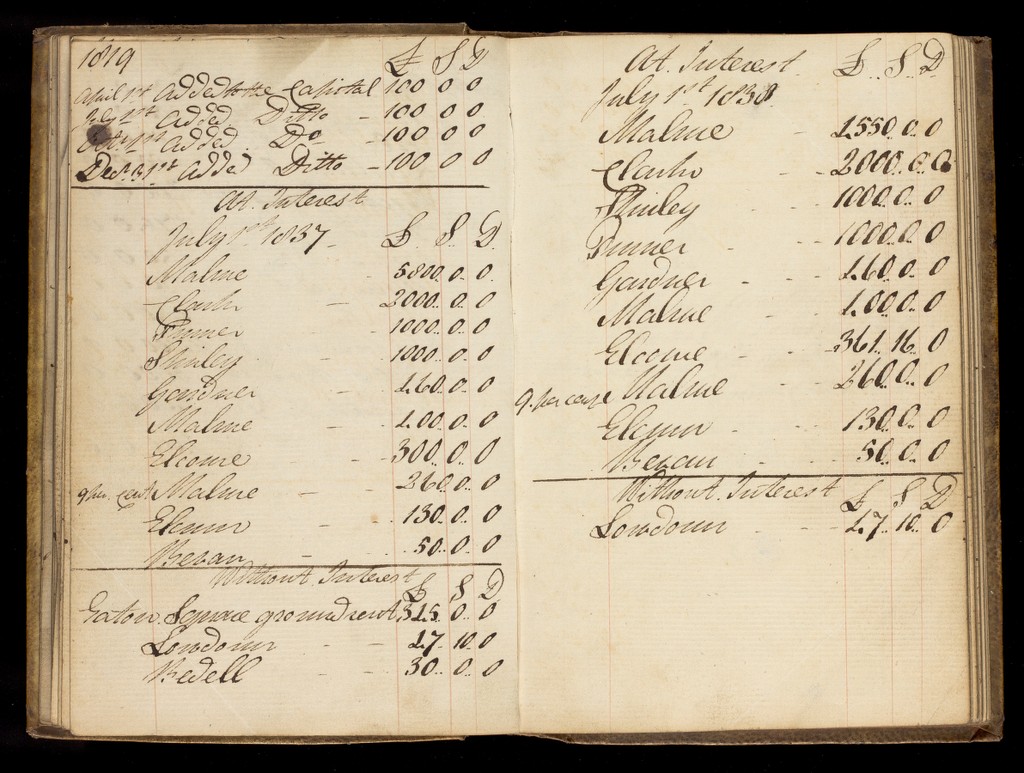 1819 £ S D
April 1st added to the Capital 100 0 0
July 1st added Ditto - 100 0 0
1st added Do - 100 0 0
Decr 31st added Ditto - 100 0 0
At. Interest
July 1st 1837 £ S D
Malme - 5800..0..0
Clark - 2000..0..0
Pinner - 1000..0..0
Shirley - 1000..0..0
Gardner - 160..0..0
Malme - 100..0..0
Elcome - 300..0..0
9 per. Cent Malme - 260..0..0
- 130..0..0
Bevan - 50..0..0
Without. Interest £ S D
Eaton Square groundrent, 315..0..0
Lowdown - 17 10..0
Bedell - 30..0..0
At. Interest £ S D
July 1st 1838
Malme - 1550..0..0
Clark - 2000..0..0
Shirley - 1000..0..0
Pinner - 1000..0..0
Gardner - 160..0..0
Malme - 100..0..0
Elcome - 361..16..0
9. per cent Malme 260..0..0
- 130..0..0
Bevan - 50..0..0
Without. Interest £ S D
Lowdown - 17..10..0